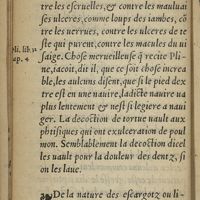 tre les escruelles, & contre les mauluai
ses ulceres, comme loups des iambes, cõ
tre les uerrues, contre les ulceres de te
ste qui purent, contre les macules du ui
Pli. lib. 32
saige. Chose merueilleuse q̃ recite Pli-
ap. 4
ne, iacoit, dit il, que ce soit chose increa
ble, les aulcuns disent, que si le pied dex
tre est en une nauire, ladicte nauire ua
plus lentement & nest si legiere a naui
ger. La decoction de tortue vault aux
phtisiques qui ont exulceration de poul
mon. Semblablement la decoction dicel
les vault pour la douleur des dentz, si
on les laue.
De la nature des escargotz ou li-